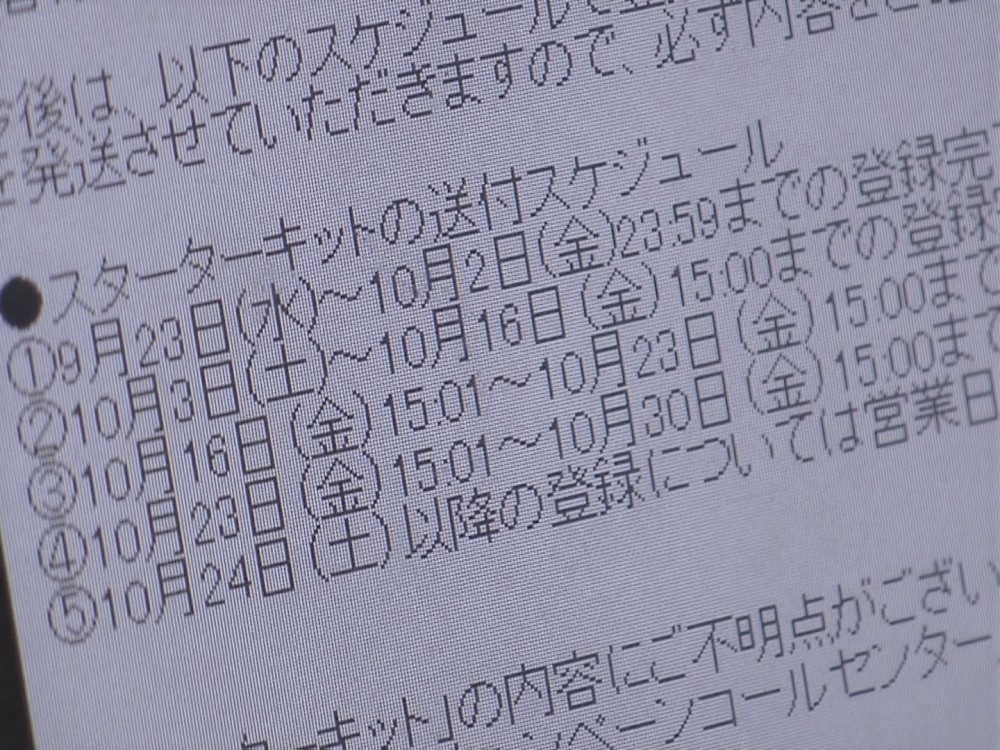 後は、以下のスケジュールで
を発送させていただきますので、必ず内容をご
●スターターキットの送付スケジュール
①9月23日(水)～10月2日(金)23:59までの登録完
②10月3日(土)～10月16日(金)15:00までの登録
③10月16日(金)15:01～10月23日(金)15:00まで
④10月23日(金)15:01～10月30日(金)15:00まで
⑤10月24日(土)以降の登録については営業日
ターキット」の内容にご不明点がござい
ンペーンコールセンター